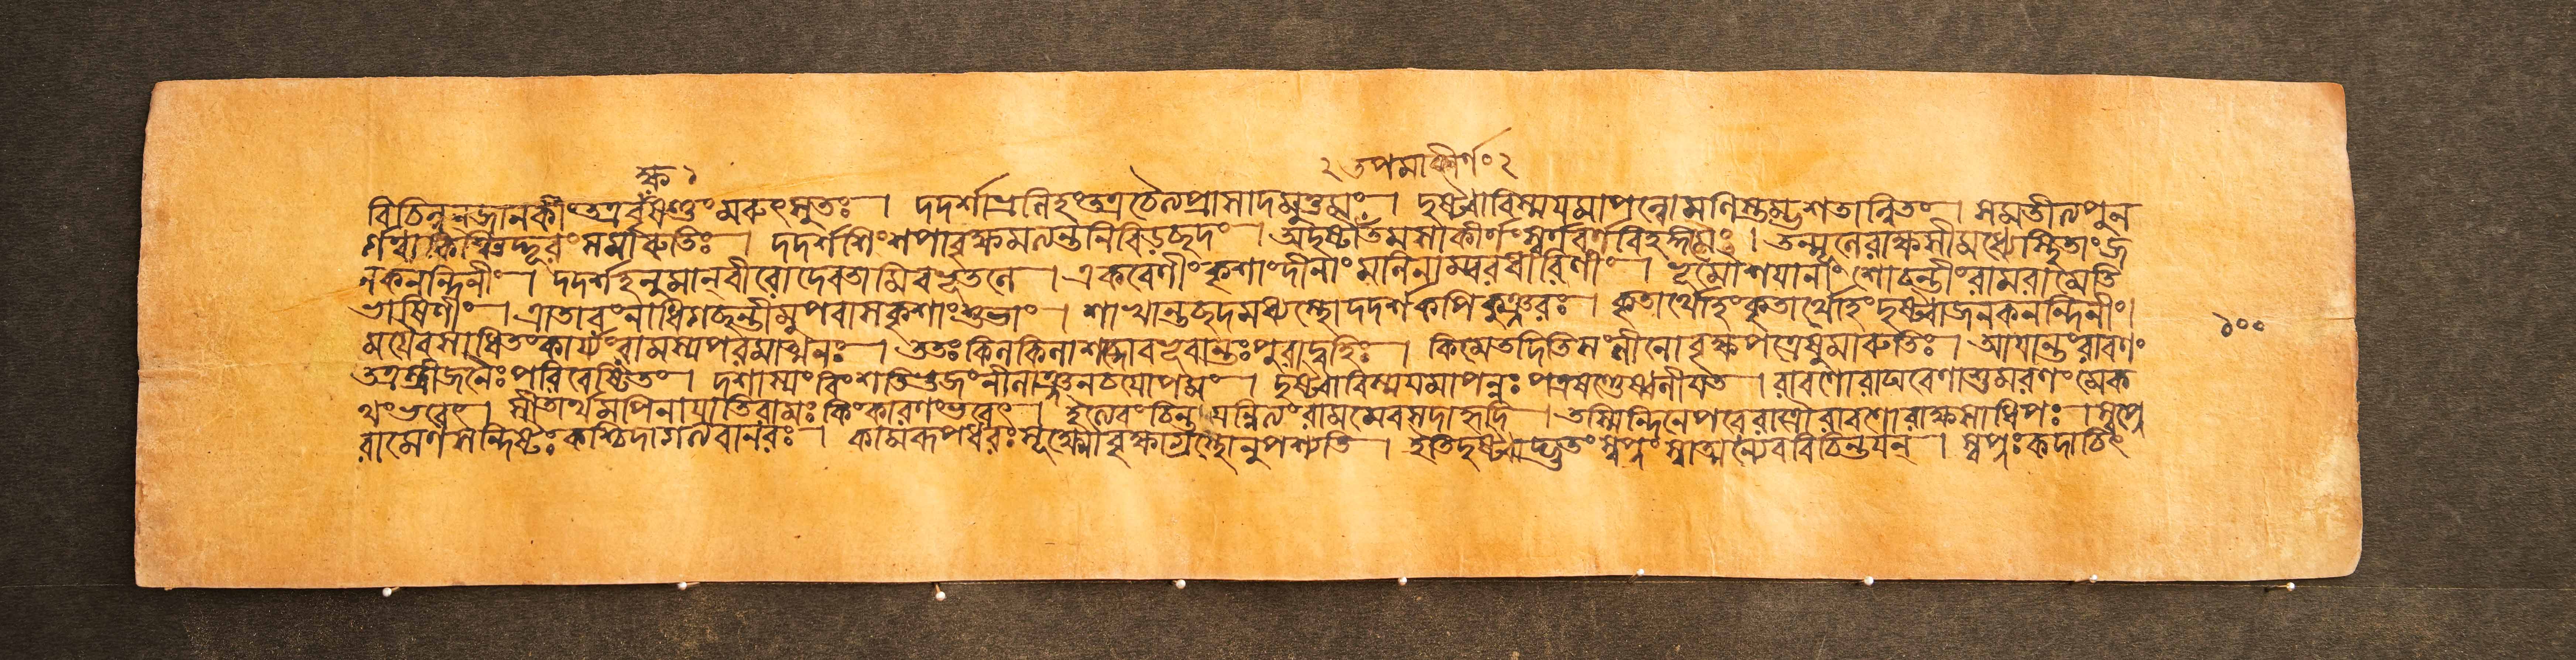 ক্ষ ১
২ তপমাকীর্ণং ২
বিচিন্বন্জানকীংতত্রবংভ্রংমরুৎসুতঃ । দদর্শাভ্রংলিহংতত্রচৈত্যপ্রাসাদমুত্তমং । দৃষ্ট্বাবিস্ময়মাপন্নোমণিস্তম্ভশতান্বিতং । সমতীত্যপুন
র্গত্বাকিঞ্চিদ্দূরংসমারুতিঃ । দদর্শশিংশপাবৃক্ষমত্যন্তনিবিড়ছদং । অদৃষ্টাতমসাকীর্ণংসুবর্ণবর্ণবিহঙ্গমং । তন্মূলেরাক্ষসীমধ্যেস্থিতাংজ
নকনন্দিনীং । দদর্শহনুমান্বীরোদেবতামিবভূতলে । একবেণীংকৃশাংদীনাংমলিনাম্বরধারিণীং । ভূমৌশয়ানাংশোচন্তীংরামরামেতি
ভাষিণীং । ত্রাতারংনাধিগছন্তীমুপবাসকৃশাংশুভাং । শাখান্তছদমধ্যস্থোদদর্শকপিকুঞ্জরঃ । কৃতার্থোহংকৃতার্থোহংদৃষ্ট্বাজনকনন্দিনীং।
ময়ৈবসাধিতংকার্য্যংরামস্যপরমাত্মনঃ । ততঃকিলকিলাশব্দোবভূবান্তঃপুরাদ্বহিঃ । কিমেতদিতিসংলীনোবৃক্ষপত্রেষুমারুতিঃ । আয়ান্তংরাবণং
তত্রস্ত্রীজনৈঃপরিবেষ্টিতং । দশাস্যংবিংশতিভুজংনীলাঞ্জনচয়োপমং । দৃষ্ট্বাবিস্ময়মাপন্নঃপত্রষণ্ডেষ্বলীয়ত । রাবণোরাঘবেণাশুমরণংমেক
থংভবেৎ । সীতার্থমপিনায়াতিরামঃকিংকারণংভবেৎ । ইত্যেবংচিন্তয়ন্নিত্যংরামমেবসদাহৃদি । তস্মিন্দিনেপররাত্রৌরাবণোরাক্ষসাধিপঃ । স্বপ্নে
রামেণসন্দিষ্টঃকশ্চিদাগত্যবানরঃ । কামরূপধরঃসূক্ষ্মোবৃক্ষাগ্রস্থোনুপশ্যতি । ইতিদৃষ্ট্বাদ্ভুতংস্বপ্নংস্বাত্মন্যেববিচিন্তয়ন্ । স্বপ্নঃকদাচিৎ
১০০